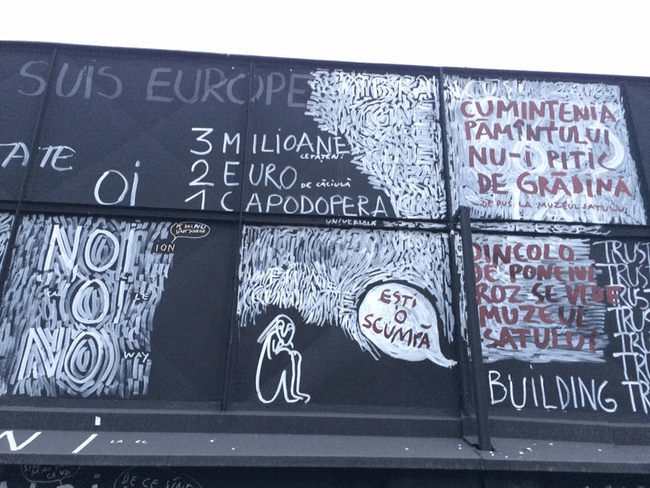 SUIS EUROPE
TATE
OI
3 MILIOANE
CETĂȚENI
2 EURO DE CĂCIULĂ
1 CAPODOPERA
UNIVERSALĂ
CUMINȚENIA
PĂMÎNTULUI
NU-I PITIC
DE GRĂDINĂ
DE PUS LA MUZEUL SATULUI
NOI
OI
NO WAY
ION
EȘTI
O
SCUMPĂ
DINCOLO
DE PONCIVE
ROZ SE VEDE
MUZEUL
SATULUI
BUILDING
TRUST
TRUST
TRUST
TRUST
DE CE